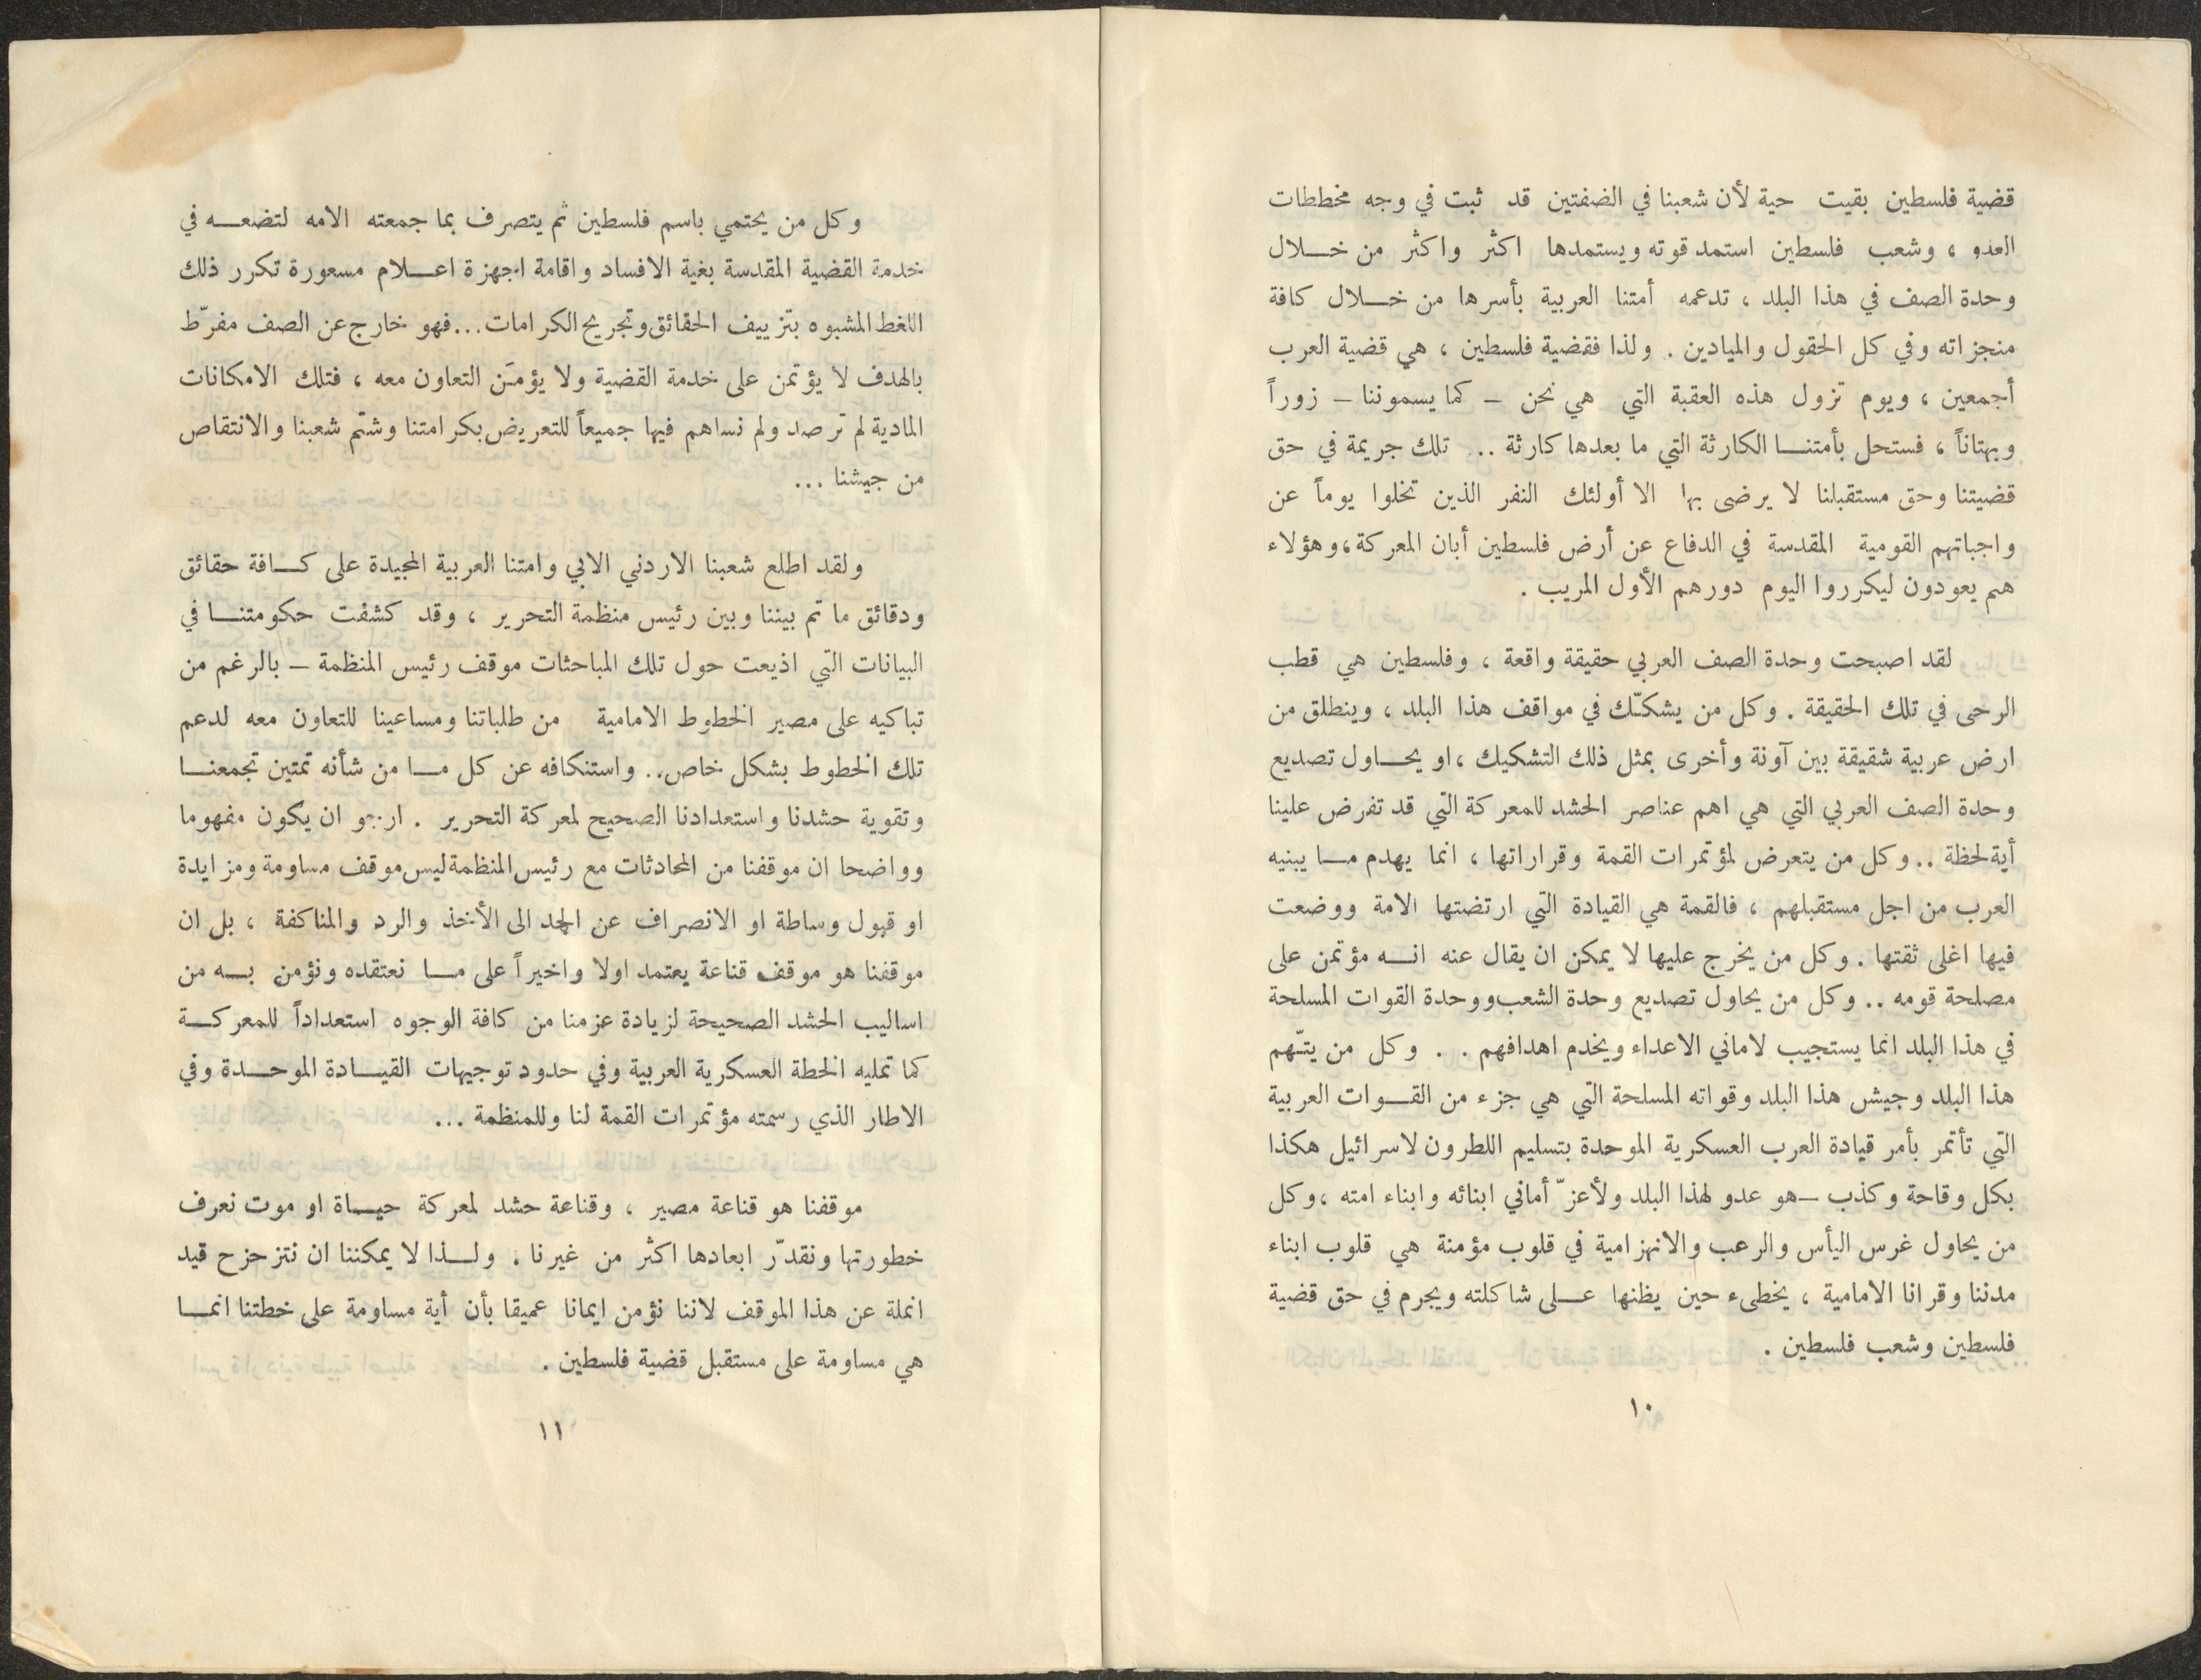 قضية فلسطين بقيت حية لأن شعبنا في الضفتين قد ثبت في وجه مخططات
العدو ، وشعب فلسطين استمد قوته ويستمدها اكثر واكثر من خــلال
وحدة الصف في هذا البلد ، تدعمه أمتنا العربية بأسرها من خــلال كافة
منجزاته وفي كل الحقول والميادين . ولذا فقضية فلسطين ، هي قضية العرب
أجمعين ، ويوم تزول هذه العقبة التي هي نحن – كما يسموننا – زوراً
وبهتاناً ، فستحل بأمتنــا الكارثة التي ما بعدها كارثة .. تلك جريمة في حق
قضيتنا وحق مستقبلنا لا يرضى بها الا أولئك النفر الذين تخلوا يوماً عن
واجباتهم القومية المقدسة في الدفاع عن أرض فلسطين أبان المعركة ، وهؤلاء
هم يعودون ليكرروا اليوم دورهم الأول المريب .
لقد اصبحت وحدة الصف العربي حقيقة واقعة ، وفلسطين هي قطب
الرحى في تلك الحقيقة . وكل من يشكّك في مواقف هذا البلد ، وينطلق من
ارض عربية شقيقة بين آونة وأخرى بمثل ذلك التشكيك ، او يحــاول تصديع
وحدة الصف العربي التي هي اهم عناصر الحشد للمعركة التي قد تفرض علينا
أية لحظة .. وكل من يتعرض لمؤتمرات القمة وقراراتها ، انما يهدم مــا يبنيه
العرب من اجل مستقبلهم ، فالقمة هي القيادة التي ارتضتها الامة ووضعت
فيها اغلى ثقتها . وكل من يخرج عليها لا يمكن ان يقال عنه انــه مؤتمن على
مصلحة قومه .. وكل من يحاول تصديع وحدة الشعب ووحدة القوات المسلحة
في هذا البلد انما يستجيب لاماني الاعداء ويخدم اهدافهم . . وكل من يتّهم
هذا البلد وجيش هذا البلد وقواته المسلحة التي هي جزء من القــوات العربية
التي تأتمر بأمر قيادة العرب العسكرية الموحدة بتسليم اللطرون لاسرائيل هكذا
بكل وقاحة وكذب – هو عدو لهذا البلد ولأعزّ أماني ابنائه وابناء امته ، وكل
من يحاول غرس اليأس والرعب والانهزامية في قلوب مؤمنة هي قلوب ابناء
مدننا وقرانا الامامية ، يخطىء حين يظنها عــلى شاكلته ويجرم في حق قضية
فلسطين وشعب فلسطين .
١٠
وكل من يحتمي باسم فلسطين ثم يتصرف بما جمعته الامه لتضعــه في
خدمة القضية المقدسة بغية الافساد واقامة اجهزة اعــلام مسعورة تكرر ذلك
اللغط المشبوه بتزييف الحقائق وتجريح الكرامات ... فهو خارج عن الصف مفرّط
بالهدف لا يؤتمن على خدمة القضية ولا يؤمَن التعاون معه ، فتلك الامكانات
المادية لم ترصد ولم نساهم فيها جميعاً للتعريض بكرامتنا وشتم شعبنا والانتقاص
من جيشنا ...
ولقد اطلع شعبنا الاردني الابي وامتنا العربية المجيدة على كــافة حقائق
ودقائق ما تم بيننا وبين رئيس منظمة التحرير ، وقد كشفت حكومتنــا في
البيانات التي اذيعت حول تلك المباحثات موقف رئيس المنظمة – بالرغم من
تباكيه على مصير الخطوط الامامية من طلباتنا ومساعينا للتعاون معه لدعم
تلك الخطوط بشكل خاص .. واستنكافه عن كل مــا من شأنه تمتين تجمعنــا
وتقوية حشدنا واستعدادنا الصحيح لمعركة التحرير . ارجو ان يكون مفهوما
وواضحا ان موقفنا من المحادثات مع رئيس المنظمة ليس موقف مساومة ومزايدة
او قبول وساطة او الانصراف عن الجد الى الأخذ والرد والمناكفة ، بل ان
موقفنا هو موقف قناعة يعتمد اولا واخيراً على مــا نعتقده ونؤمن بــه من
اساليب الحشد الصحيحة لزيادة عزمنا من كافة الوجوه استعداداً للمعركــة
كما تمليه الخطة العسكرية العربية وفي حدود توجيهات القيــادة الموحــدة وفي
الاطار الذي رسمته مؤتمرات القمة لنا وللمنظمة ...
موقفنا هو قناعة مصير ، وقناعة حشد لمعركة حيــاة او موت نعرف
خطورتها ونقدّر ابعادها اكثر من غيرنا . ولــذا لا يمكننا ان نتزحزح قيد
انملة عن هذا الموقف لاننا نؤمن ايمانا عميقا بأن أية مساومة على خطتنا انمــا
هي مساومة على مستقبل قضية فلسطين .
١١